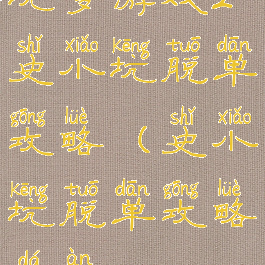 shǐ xiǎo kēng tuō dān
史小坑脱单
gōng lüè shǐ xiǎo
攻略（史小
kēng tuō dān gōng lüè
坑脱单攻略
dá àn